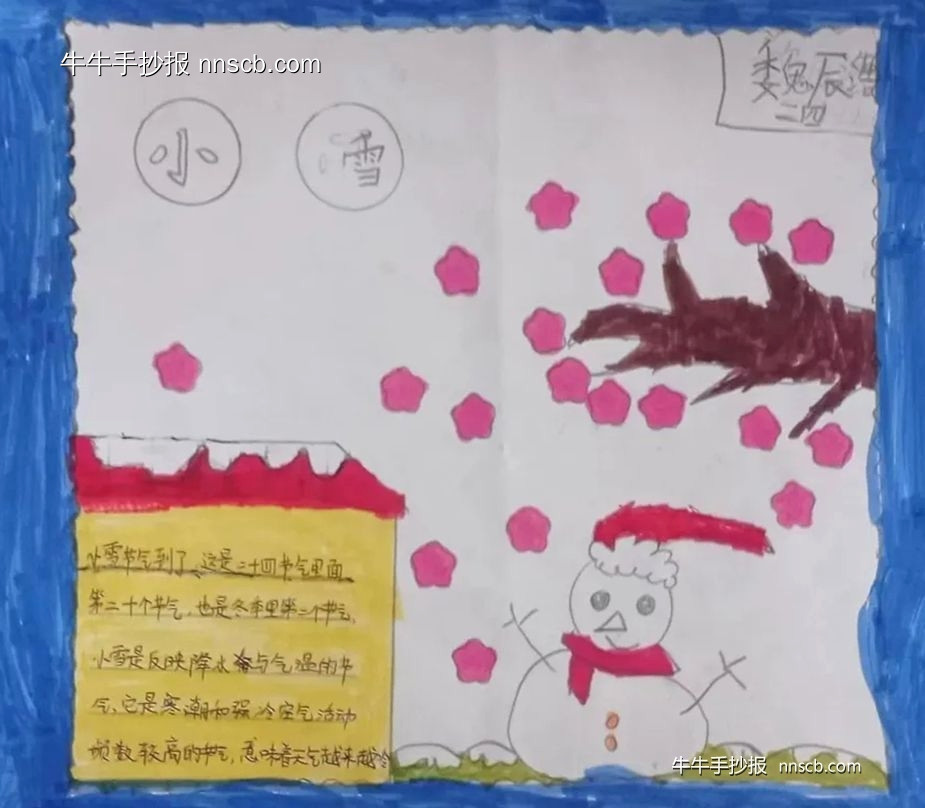 牛牛手抄报 nnscb.com
魏辰
二四
小 雪
小雪节气到了,这是二十四节气里面
第二十个节气,也是冬季里第二个节气,
小雪是反映降水与气温的节
气,它是寒潮和强冷空气活动
频数较高的节气,意味着天气越来越冷
牛牛手抄报 nnscb.com